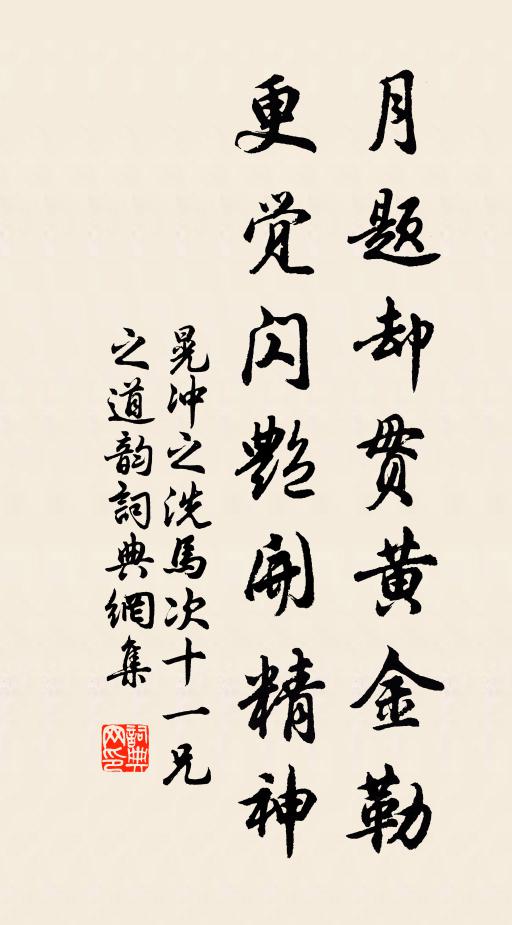 月题却贯黄金勒
更觉闪艷开精神
晁冲之洗馬次十一兄
之道韵詞典網集
詞典网印